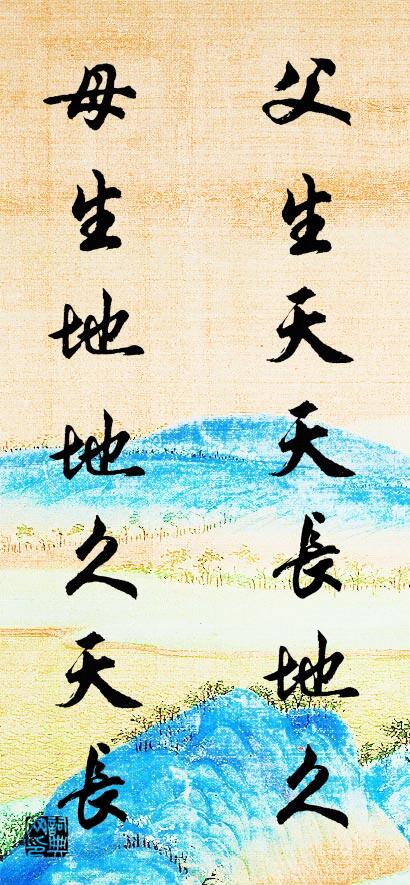 父生天天長地久
母生地地久天長